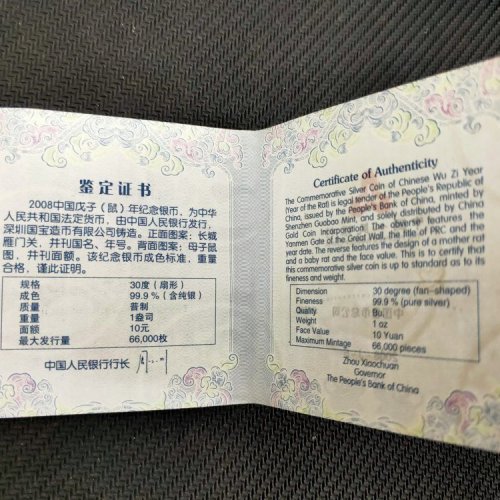 鉴定证书
2008中国戊子（鼠）年纪念银币，为中华
人民共和国法定货币，由中国人民银行发行，
深圳国宝造币有限公司铸造。正面图案：长城
雁门关，并刊国名、年号。背面图案：母子鼠
图，并刊面额。该纪念银币成色标准，重量
合格，谨此证明。
规格 30度（扇形）
成色 99.9％（含纯银）
质量 普制
重量 1盎司
面额 10元
最大发行量 66,000枚
中国人民银行行长
Certificate of Authenticity
The Commemorative Silver Coin of Chinese Wu Zi Year
(Year of the Rat) is legal tender of the People's Republic of
China, issued by the People's Bank of China, minted by
Shenzhen Guobao Mint, and solely distributed by China
Gold Coin Incorporation. The adverse features the
Yanmen Gate of the Great Wall, the title of PRC and the
year date. The reverse features the design of a mother rat
and a baby rat and the face value. This is to certify that
this commemorative silver coin is up to standard as to its
fineness and weight.
Dimension 30 degree (fan-shaped)
Fineness 99.9 % (pure silver)
Quality Bu.
Weight 1 oz
Face Value 10 Yuan
Maximum Mintage 66,000 pieces
Zhou Xiaochuan
Governor
The People's Bank of China